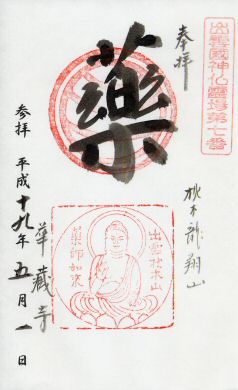 出雲國神仏霊場第七番
奉拝
藥
枕木龍翔山
出雲枕木山
藥師如来
華蔵寺
参拝 平成十九年五月一日